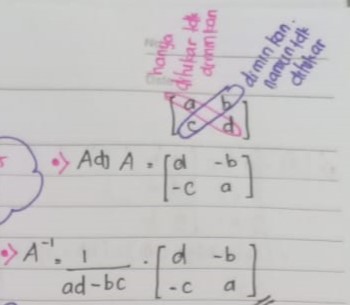 hanya
ditukar tdk
diminkan
diminkan.
namun tdk
ditukar
[a b
c d]
•> Adj A = [d -b
-c a]
•> A⁻¹ = 1/(ad-bc) · [d -b
-c a]